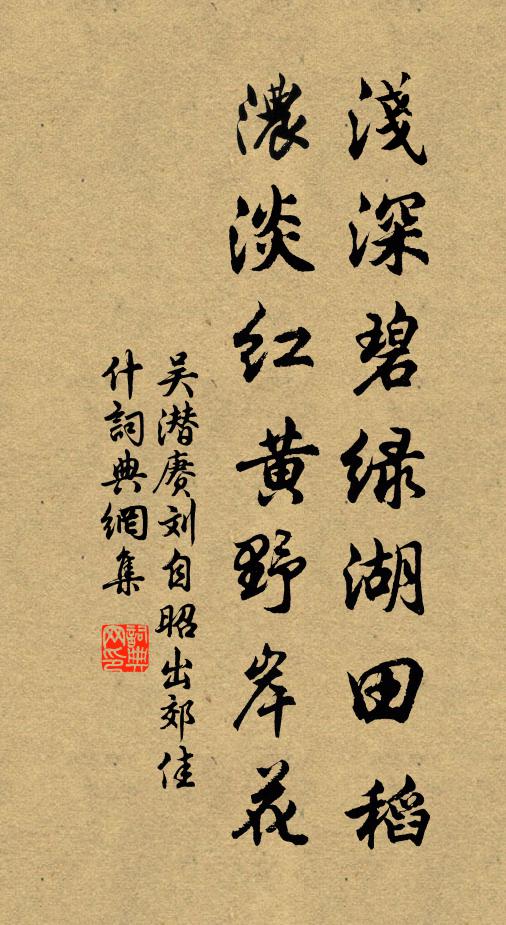 淺深碧绿湖田稻
濃淡红黄野岸花
吴潛赓刘自昭出郊佳
什詞典網集
詞典网印